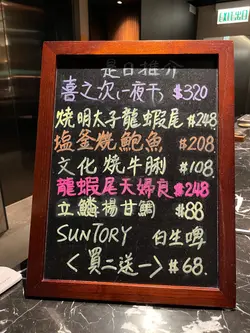 是日推介
喜之次一夜干 $320
燒明太子龍蝦尾 $248
塩釜燒鮑魚 $208
文化燒牛脷 $108
龍蝦尾天婦良 $248
立鱗揚甘鯛 $88
SUNTORY 白生啤
<買二送一> $68